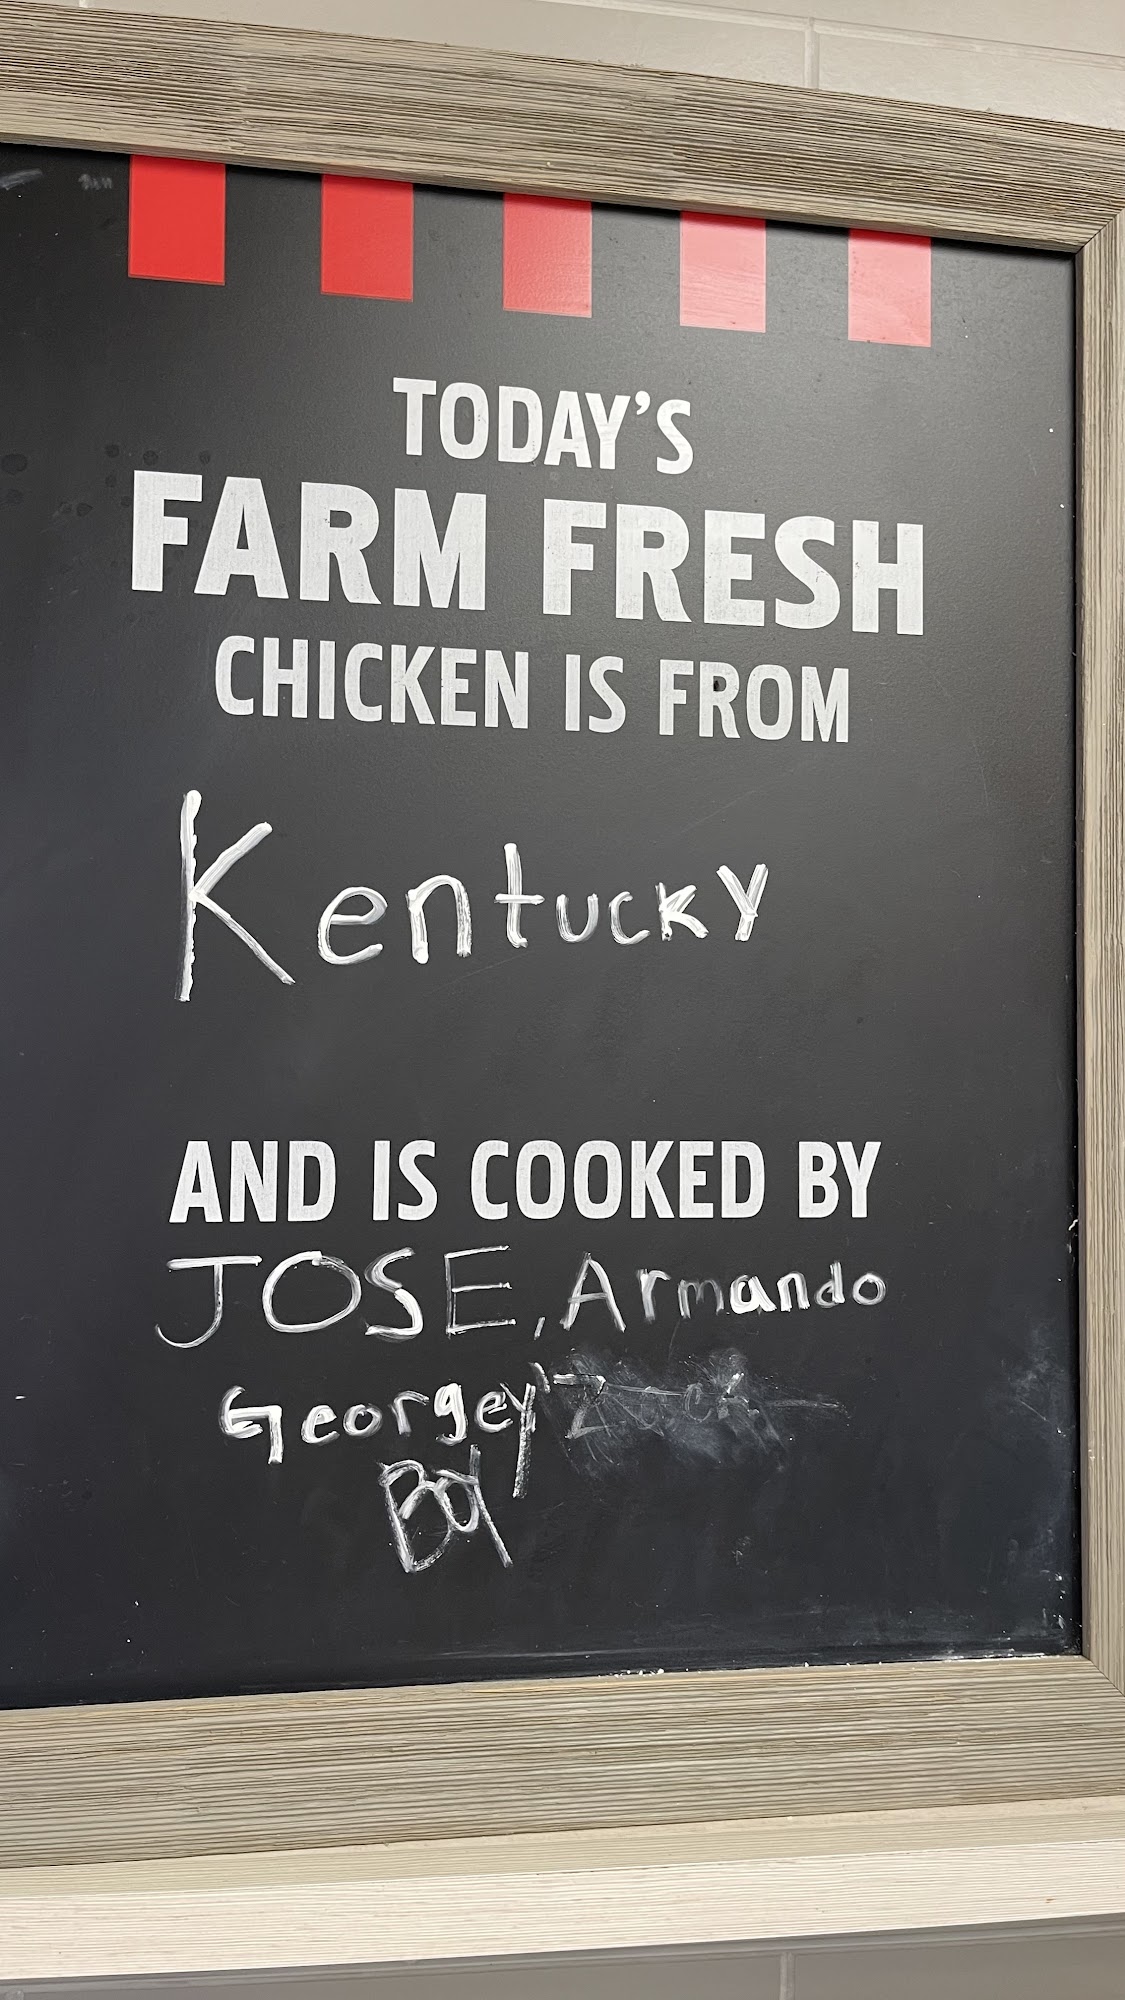 TODAY'S
FARM FRESH
CHICKEN IS FROM
Kentucky
AND IS COOKED BY
JOSE, Armando
Georgey
Boy